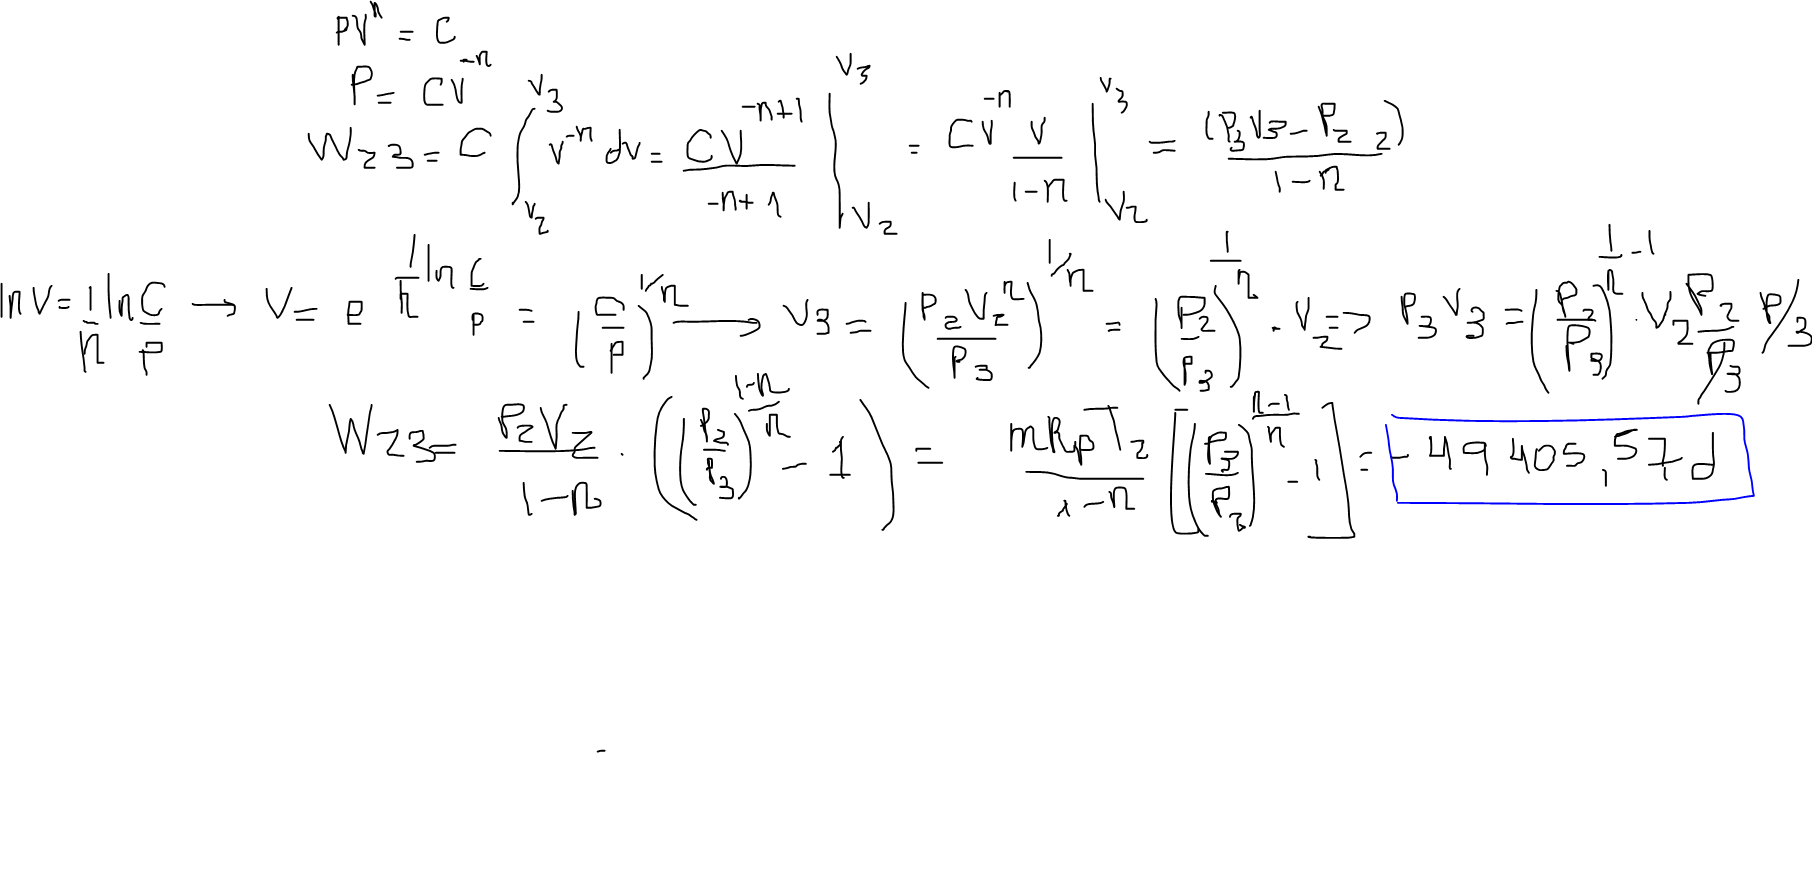 PV^n = C
P = CV^-n
W23 = C ∫_V2^V3 V^-n dv = CV^-n+1 / -n+1 |_V2^V3 = CV^-n V / 1-n |_V2^V3 = (P3V3 - P2 2) / 1-n
ln V = 1/n ln C/P → V = e^1/n ln C/P = (C/P)^1/n → V3 = (P2V2^n / P3)^1/n = (P2/P3)^1/n · V2 => P3V3 = (P2/P3)^1/n -1 · V2 P2/P3 P/3
W23 = P2V2 / 1-n · ((P2/P3)^1-n/n - 1) = mRpT2 / 1-n [(P3/P2)^n-1/n - 1] = - 49 405,57 d
-